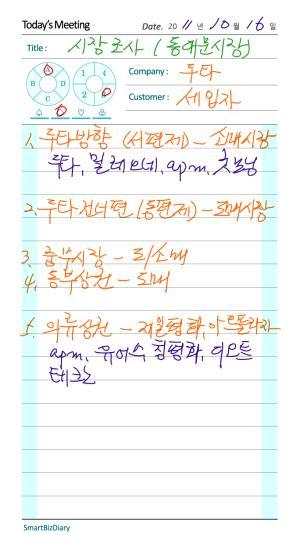 Today's Meeting Date. 20 11 년 10 월 16 일
Title : 시장조사 (동대문시장)
Company : 두타
Customer : 세입자
A
B
C
D
1
4
2
3
1. 두타방향 (서편제) - 소매시장
두타, 밀레오레, apm, 굿모닝
2. 두타건너편 (동편제) - 도매시장
3. 중부시장 - 도/소매
4. 동부상권 - 도매
5. 의류상권 - 제일평화, 아트플라자
apm, 유어스, 청평화, 디오트
테크노
SmartBizDiary